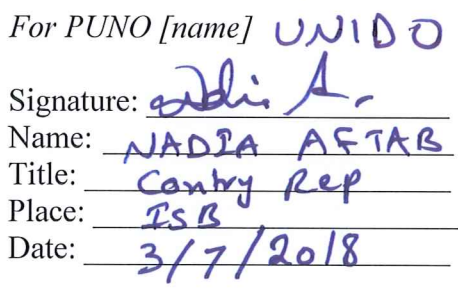 For PUNO [name] UNIDO
Signature: Nadia A.
Name: NADIA AFTAB
Title: Contry Rep
Place: ISB
Date: 3/7/2018